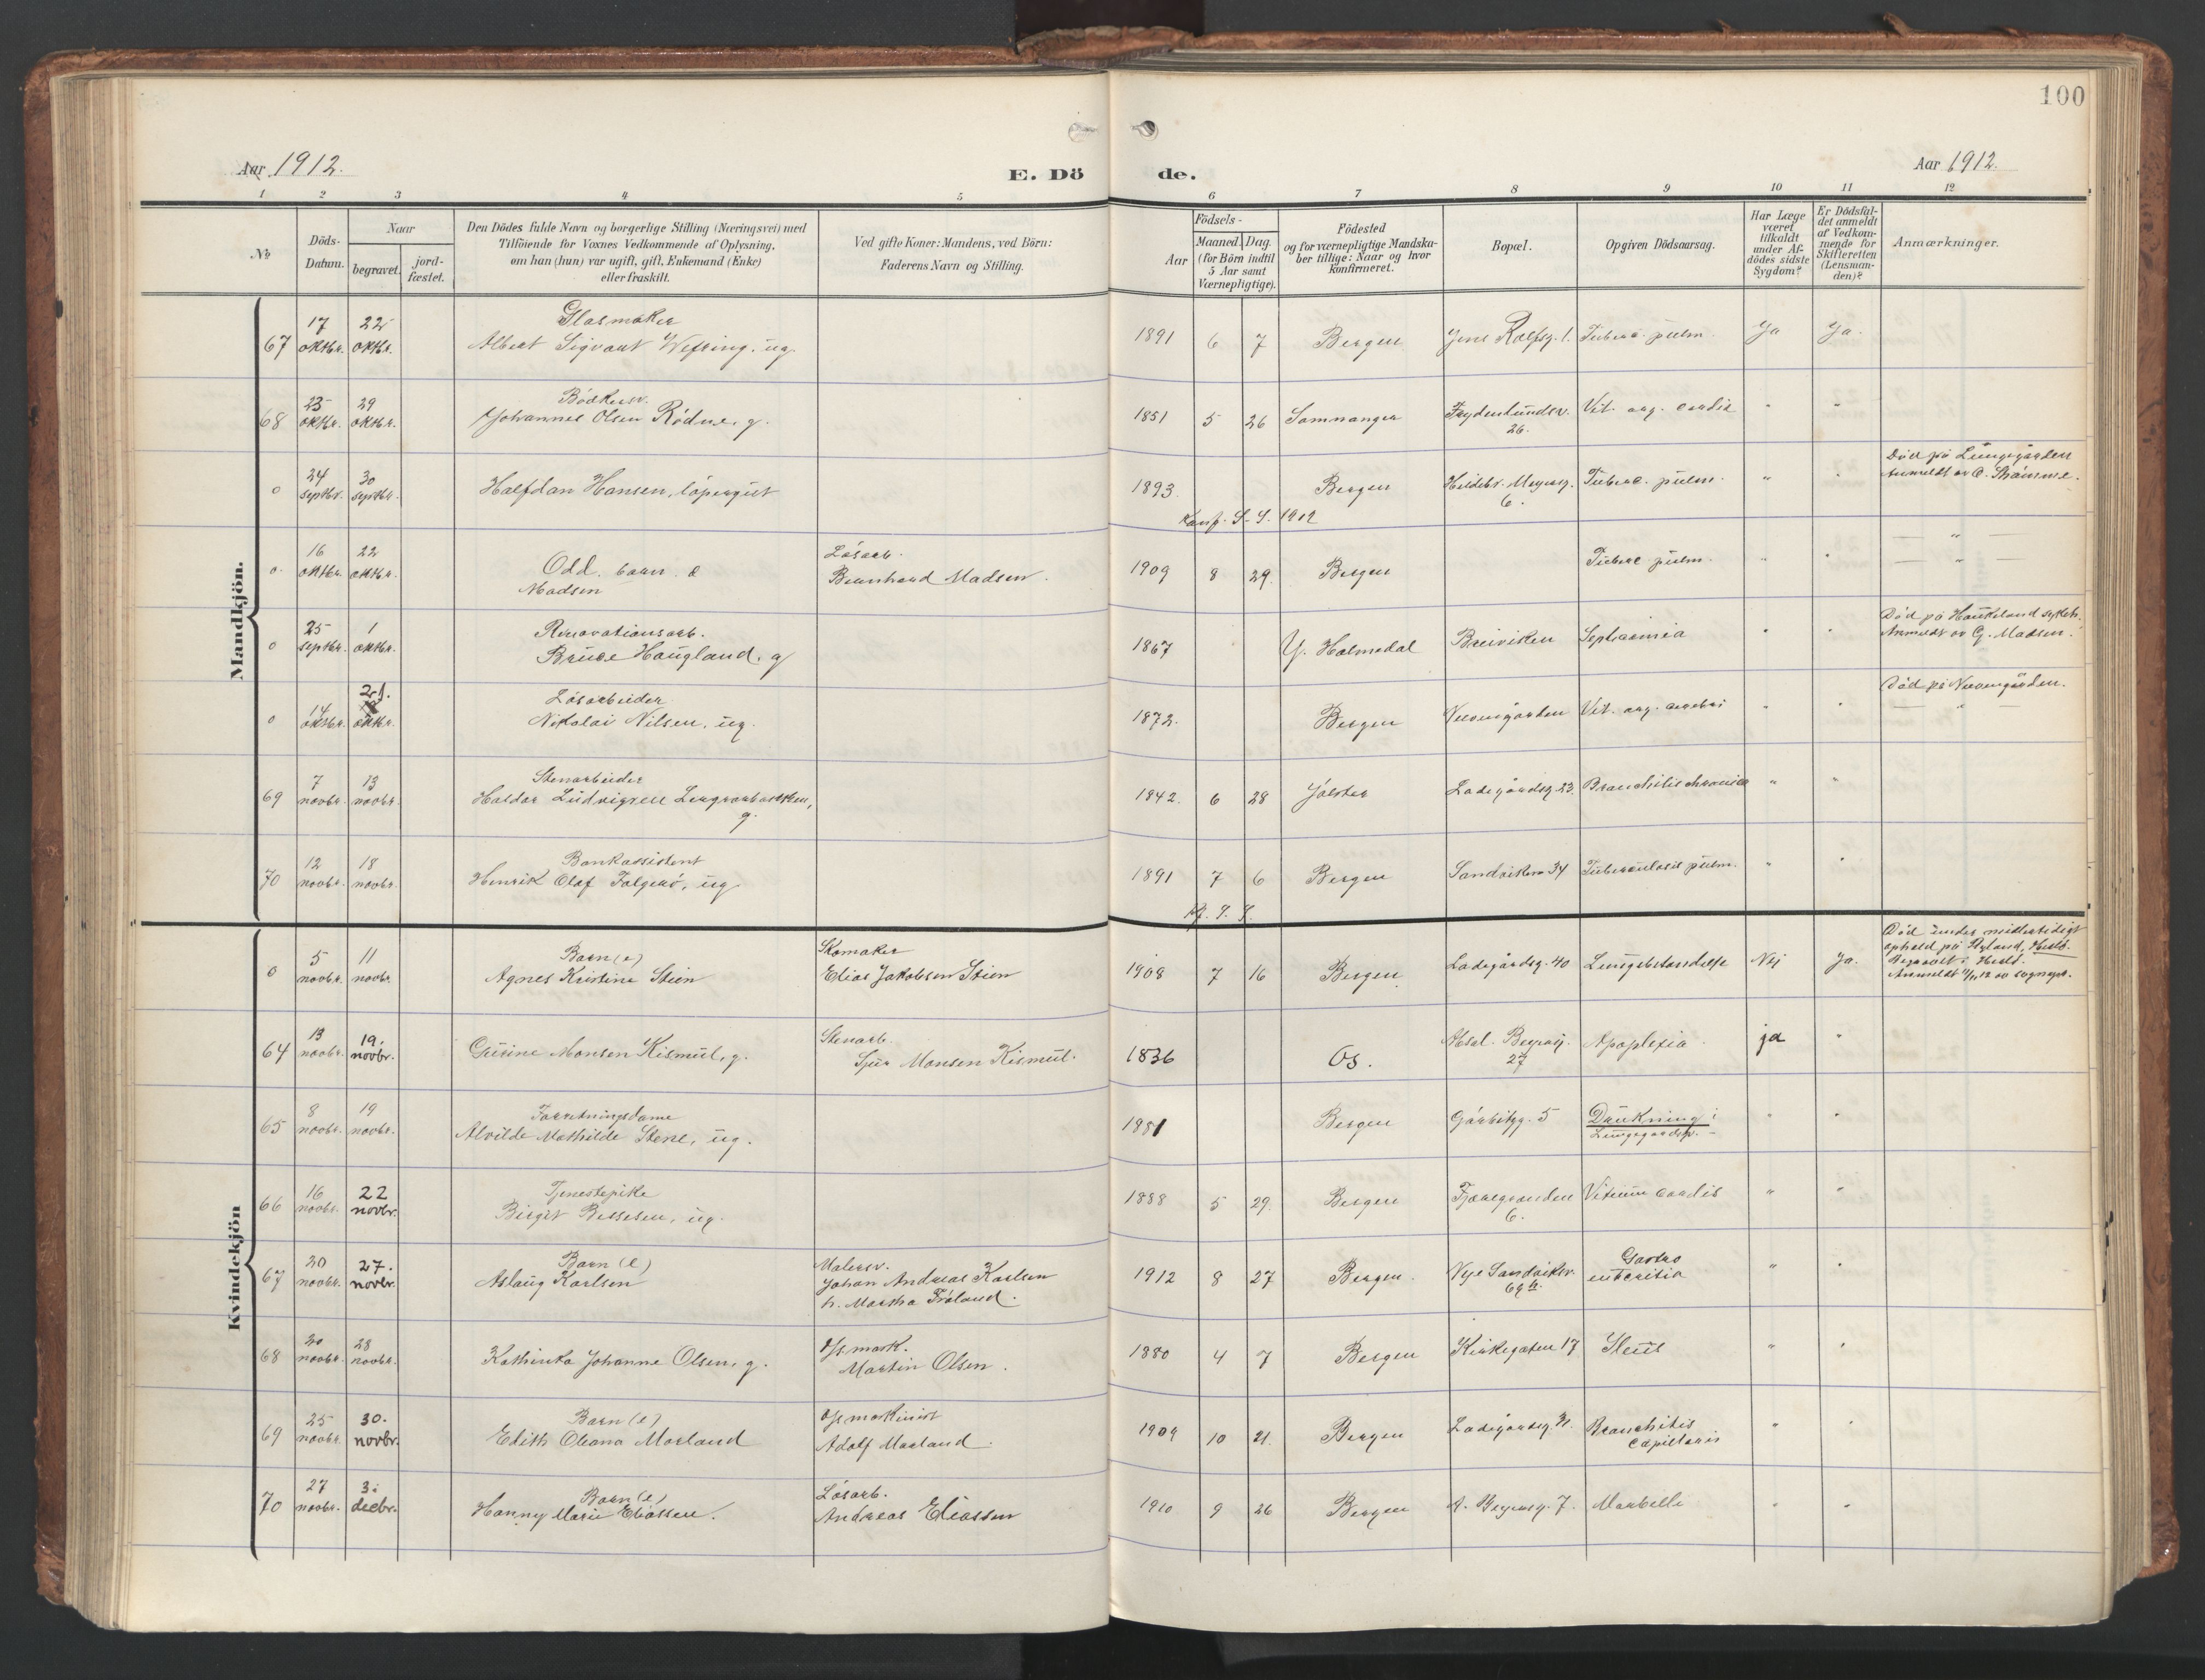 100
Aar 1912.
E. Dö
de.
Aar 1912.
1 2 3 4 5 6 7 8 9 10 11 12
№
Döds-Datum.
Naar
begravet.
jord-fæstet.
Den Dödes fulde Navn og borgerlige Stilling (Næringsvei) med
Tilföiende for Voxnes Vedkommende af Oplysning,
om han (hun) var ugift, gift, Enkemand (Enke)
eller fraskilt.
Ved gifte Koner: Mandens, ved Börn:
Faderens Navn og Stilling.
Födsels-
Aar
Maaned. Dag.
(for Börn indtil
5 Aar samt
Værnepligtige).
Födested
og for værnepligtige Mandska-
ber tillige: Naar og hvor
konfirmeret.
Bopæl.
Opgiven Dödsaarsag.
Har Læge
været
tilkaldt
under Af-
dödes sidste
Sygdom?
Er Dödsfal-
det anmeldt
af Vedkom-
mende for
Skifteretten
(Lensman-
den)?
Anmærkninger.
Mandkjön.
Glasmaker
67 17 oktbr. 22 oktbr. Albert Sigvart Wefring, ug. 1891 6 7 Bergen Jens Rolfsg. 1. Tuberc. pulm. Ja Ja.
Bödkersv.
68 23 oktbr. 29 oktbr. Johannes Olsen Rödne, g. 1851 5 26 Samnanger Frydenlundsv. 26. Vit. org. cordis " "
0 24 septbr. 30 septbr. Halfdan Hansen, löpergut 1893. Bergen Hildebr. Meyersg. 6. Tuberc. pulm. " " Död på Lungegården
Anmeldt av O. Strömme.
Konf. S. S. 1912
0 16 oktbr. 22 oktbr. Odd, barn, e Madsen Lösarb. Bernhard Madsen. 1909 8 29. Bergen Tuberc pulm. " " — " —
— " —
Renovationsarb.
0 25 septbr. 1 oktbr. Bruse Haugland, g 1867 Y. Holmedal Breiviken Septicæmia " " Död på Haukeland sykeh.
Anmeldt av G. Madsen.
Lösarbeider
0 14 oktbr. 21. oktbr. Nikolai Nilsen, ug. 1872. Bergen Nevengården Vit. org. cerebri " " Död på Nevengården.
— " —
Stenarbeider
69 7 novbr. 13 novbr. Haldor Ludvigsen g. 1842. 6 28 Jölster Ladegårdsg. 23. Bronchitis chronica " "
Bankassistent
70 12 novbr. 18 novbr. Henrik Olaf Falgerö, ug 1891 7 6 Bergen Sandviken 34 Tuberculosis pulm. " "
Kvindekjön
Barn (e)
0 5 novbr. 11 novbr. Agnes Kristine Stien Skomaker Elias Jakobsen Stien 1908 7 16 Bergen Ladegårdsg. 40 Lungebetændelse Nej Ja. Död under midlertidigt
ophold på Hyland, Hesb.
Begravet i Hesb.
Anmeldt 11/11 12 av sognepr.
64 13 novbr. 19. novbr. Gurine Monsen Kismul, g. Stenarb. Sjur Monsen Kismul. 1836 Os. Absal. Beyersg. 27 Apoplexia ja "
Forretningsdame
65 8 novbr. 19 novbr. Alvilde Mathilde Stene, ug. 1881 Bergen 5 Drukning i
Lungegårdsv. " "
Tjenestepike
66 16 novbr. 22 novbr. Birgit Bessesen, ug. 1888 5 29. Bergen Tjæregranden 6. Vitium cordis " "
Barn (e)
67 20 novbr. 27. novbr. Aslaug Karlsen Malersv. Johan Andreas Karlsen
h. Martha Fröland. 1912 8 27 Bergen. Nye Sandviksv. 69 b. Gastro
enteritis " "
68 20 novbr. 28 novbr. Kathinka Johanne Olsen, g. Martin Olsen. 1880 4 7 Bergen Kirkegaten 17 Ileus " "
Barn (e)
69 25 novbr. 30. novbr. Edith Oleana Morland maskinist Adolf Morland. 1909 10 21. Bergen Ladegårdsg. 31. Bronchitis
capillaris " "
Barn (e)
70 27 novbr. 3. decbr. Hanny Marie Eliassen. Lösarb. Andreas Eliassen 1910 9 26 Bergen A. Beyersg. 7. Morbilli " "